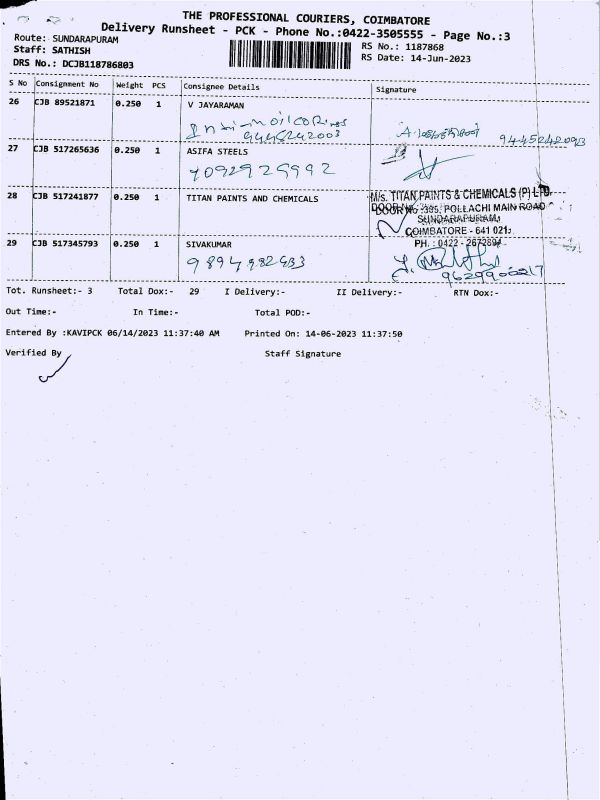 THE PROFESSIONAL COURIERS, COIMBATORE
Delivery Runsheet - PCK - Phone No.:0422-3505555 - Page No.:3
Route: SUNDARAPURAM
RS No.: 1187868
Staff: SATHISH
RS Date: 14-Jun-2023
DRS No.: DCJB118786803
S No Consignment No Weight PCS Consignee Details Signature
26 CJB 89521871 0.250 1 V JAYARAMAN
9445242003
9445242093
27 CJB 517265636 0.250 1 ASIFA STEELS
7092929992
28 CJB 517241877 0.250 1 TITAN PAINTS AND CHEMICALS
M/s. TITAN PAINTS & CHEMICALS (P) LTD.
DOOR No :305, POLLACHI MAIN ROAD
SUNDARAPURAM,
COIMBATORE - 641 021.
PH. : 0422 - 2672894
29 CJB 517345793 0.250 1 SIVAKUMAR
9894982433
9629900217
Tot. Runsheet:- 3 Total Dox:- 29 I Delivery:- II Delivery:- RTN Dox:-
Out Time:- In Time:- Total POD:-
Entered By :KAVIPCK 06/14/2023 11:37:40 AM Printed On: 14-06-2023 11:37:50
Verified By Staff Signature